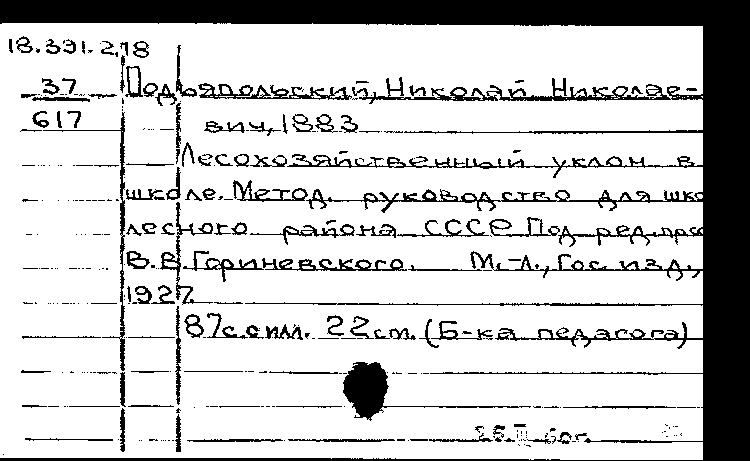 18.391.218
37
617
Подъяпольский, Николай Николае-
вич, 1883
Лесохозяйственный уклон в
школе. Метод. руководство для шко
лесного района СССР Под ред. про
В.В. Гориневского. М.-Л., Гос. изд.,
1927.
87с. с илл. 22см. (Б-ка педагога)
26.III 60г.